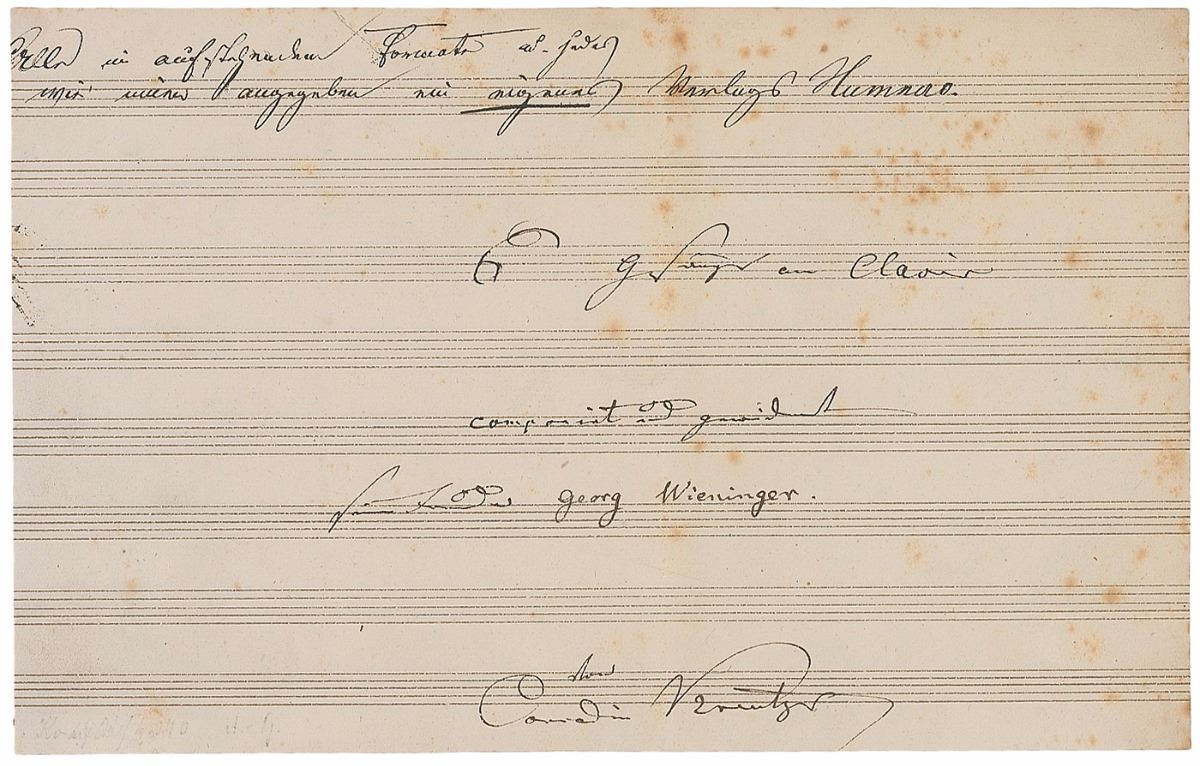 Alle in aufstehendem Formate u. Jedes
wie innen angegeben ein eigenes Verlags Numero.
6 Gesänge am Clavier
componirt und gewidmet
Freunde Georg Wieninger.
von
Conradin Kreutzer